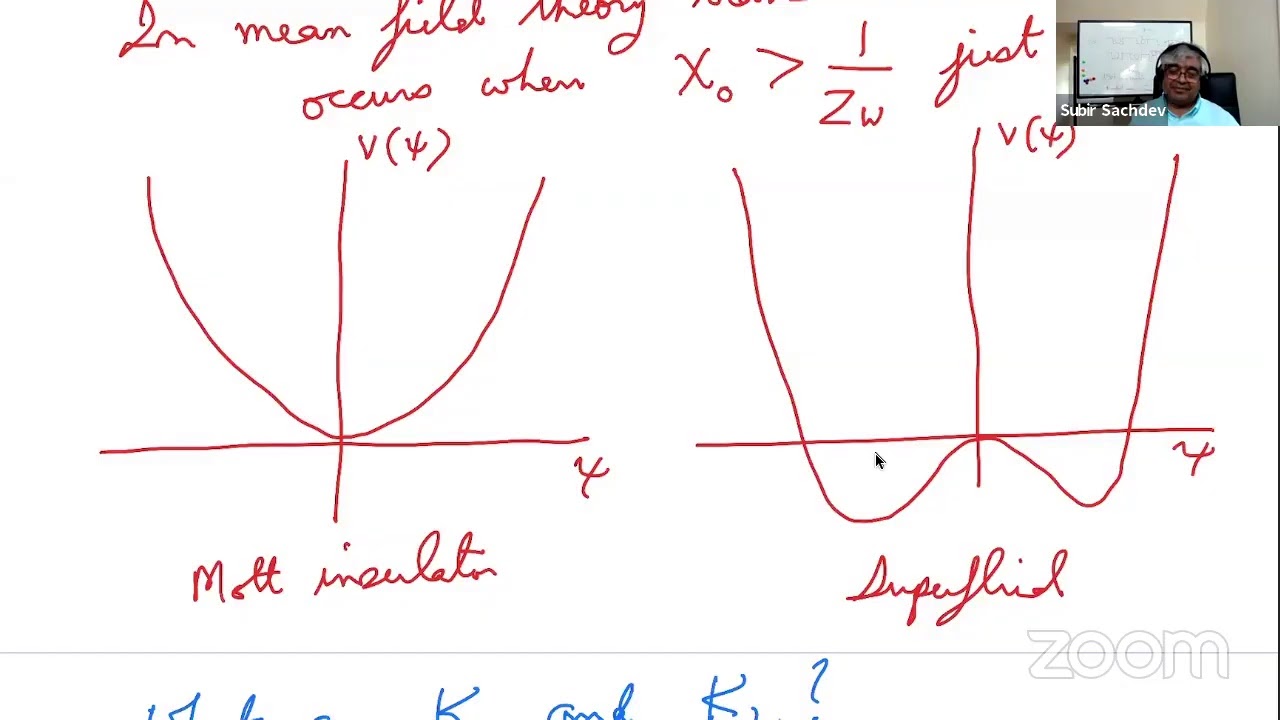 In mean field theory
occurs when χ₀ > 1/Zw just
Subir Sachdev
V(ψ)
V(ψ)
ψ
ψ
Mott insulator
Superfluid
zoom
K and K ?